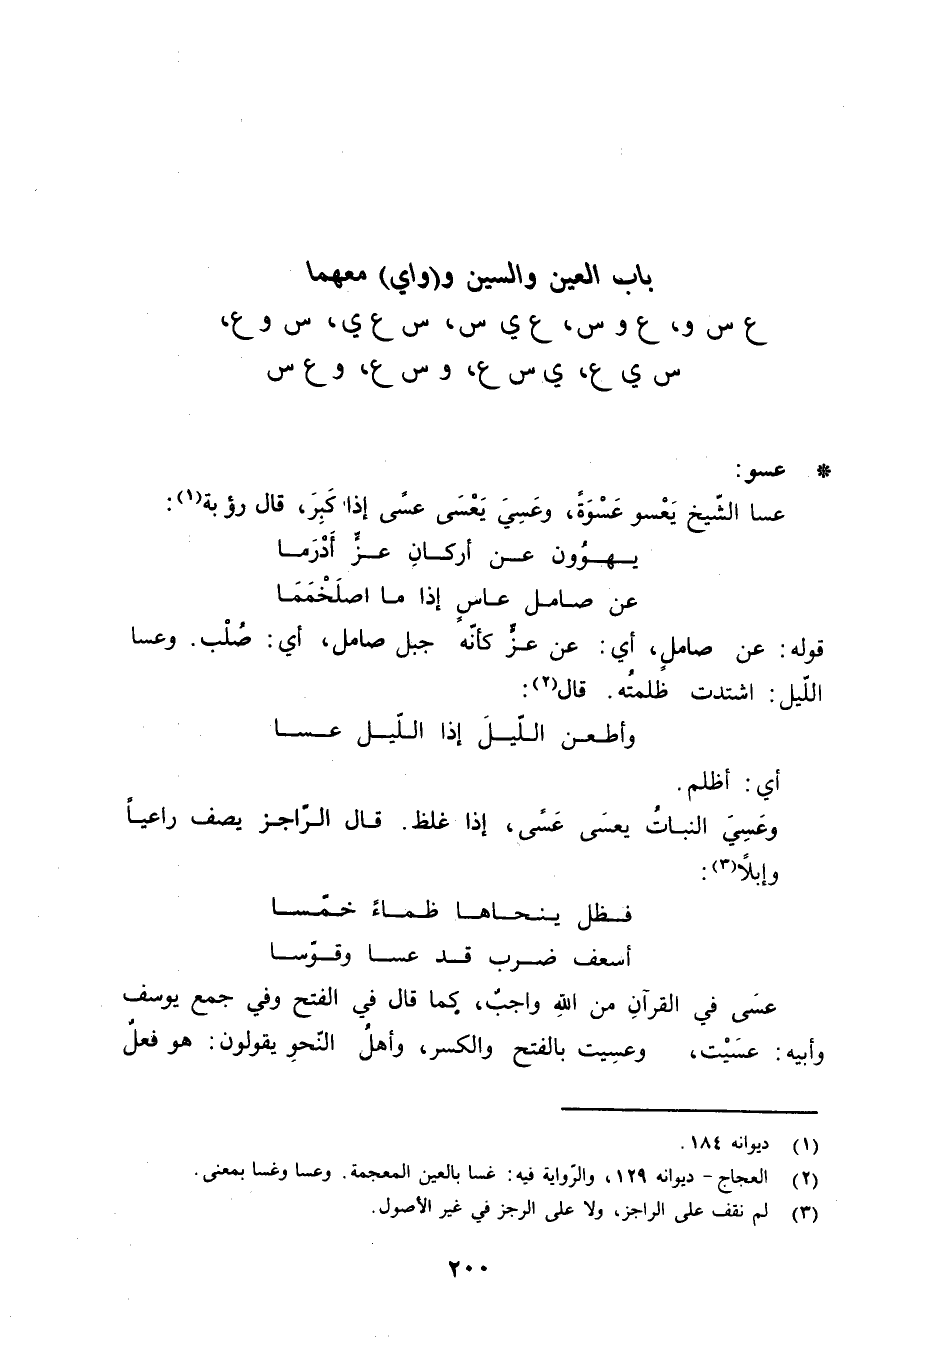 باب العين والسين و(واي) معهما
ع س و، ع و س، ع ي س، س ع ي، س و ع،
س ي ع، ي س ع، و س ع، و ع س
* عسو:
عسا الشّيخ يَعْسو عَسْوَةً، وعَسِيَ يَعْسَى عسًى إذا كَبِرَ، قال رؤبة(١):
يـهـوُون عـن أركـانِ عـزٍّ أَدْرَمـا
عن صـامـل عـاسٍ إذا مـا اصلَخْمَمَـا
قوله: عن صاملٍ، أي: عن عـزٍّ كأنّه جبل صامل، أي: صُلْب. وعسا
اللّيل: اشتدت ظلمتُه. قال(٢):
وأطـعـن اللّيـلَ إذا اللّيـل عـسـا
أي: أظلم.
وعَسِيَ النبـاتُ يعسَى عَسًى، إذا غلظ. قـال الـرّاجـز يصف راعيـاً
وإبلاً(٣):
فـظل يـنـحـاهـا ظمـاءً خمّـسـا
أسعف ضـرب قـد عسـا وقـوّسـا
عسَى في القرآنِ من اللهِ واجبٌ، كما قال في الفتح وفي جمع يوسف
وأبيه: عسَيْت، وعسِيت بالفتح والكسر، وأهلُ النّحوِ يقولون: هو فعلٌ
(١) ديوانه ١٨٤.
(٢) العجاج - ديوانه ١٢٩، والرّواية فيه: غسا بالعين المعجمة. وعسا وغسا بمعنى.
(٣) لم نقف على الراجز، ولا على الرجز في غير الأصول.
٢٠٠